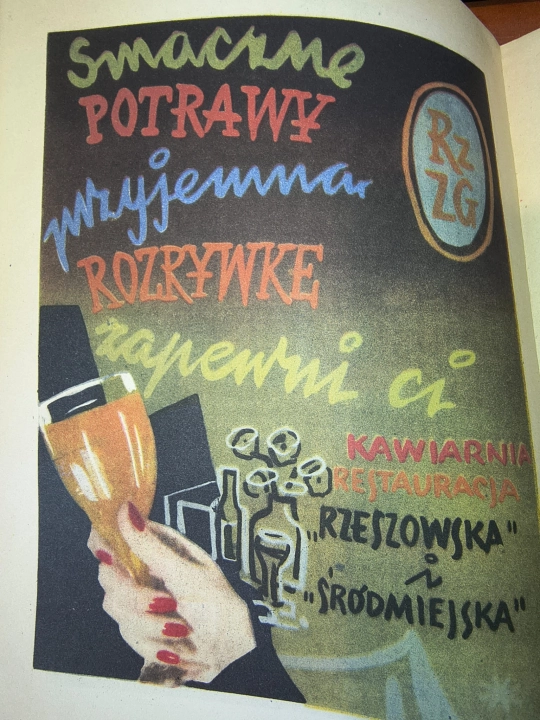 Smaczne
POTRAWY
przyjemną
ROZRYWKĘ
zapewni ci
KAWIARNIA
RESTAURACJA
„RZESZOWSKA”
i
„ŚRÓDMIEJSKA”
Rz
ZG